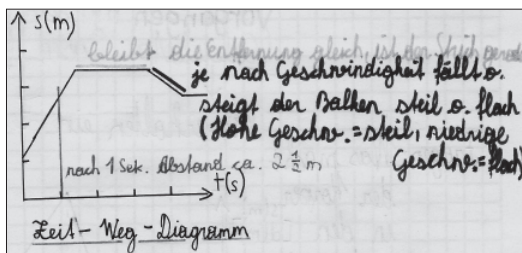 s(m)
bleibt die Entfernung gleich, ist der Strich gerade
je nach Geschwindigkeit fällt o.
steigt der Balken steil o. flach
(Hohe Geschw. = steil, niedrige
Geschw. = flach)
nach 1 Sek. Abstand ca. 2 1/2 m
t(s)
Zeit-Weg-Diagramm